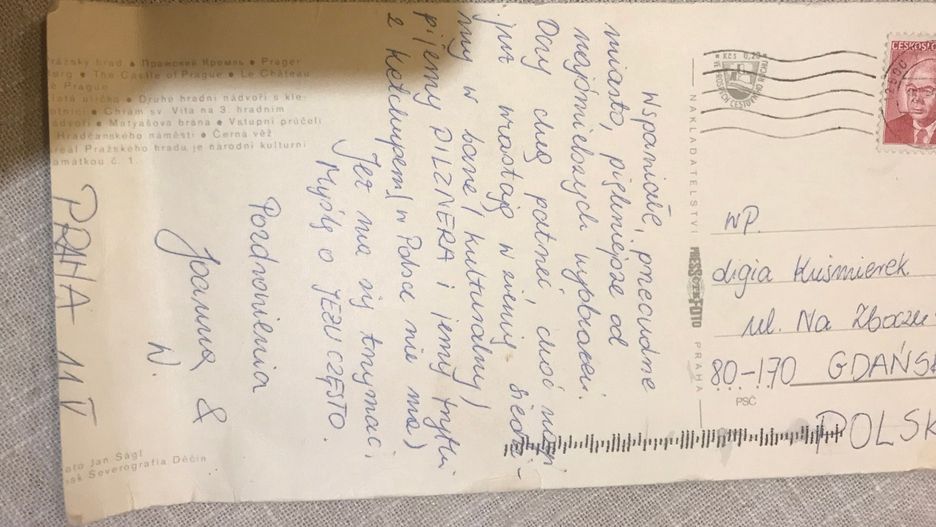 Pražský hrad • Пражский Кремль • Prager
Burg • The Castle of Prague • Le Château
de Prague
Zlatá ulička • Druhé hradní nádvoří s kle-
notnicí • Chrám sv. Víta na 3. hradním
nádvoří • Matyášova brána • Vstupní průčelí
z Hradčanského náměstí • Černá věž
Areál Pražského hradu je národní kulturní
památkou č. 1.
PRAHA 11 V
Wspaniałe, przecudne
miasto, piękniejsze od
najśmielszych wyobrażeń.
Oczy chcą patrzeć, choć nogi
już wrastają w ziemię siedzi-
my w barze (kulturalny)
pijemy PILZNERA i jemy frytki
z ketchupem (w Polsce nie ma)
Jez nie się trzymać
Myślę o JEZU CZĘSTO.
Pozdrowienia
Joanna &
W.
Foto Jan Ságl
Tisk Severografia Děčín
NAKLADATELSTVÍ
PRESSFOTO
PRAHA
KČS 0,20
ČESKOSLO
WP.
Ligia Kuśmierek
ul. Na Zboczu
80-170 GDAŃSK
PSČ
POLSK